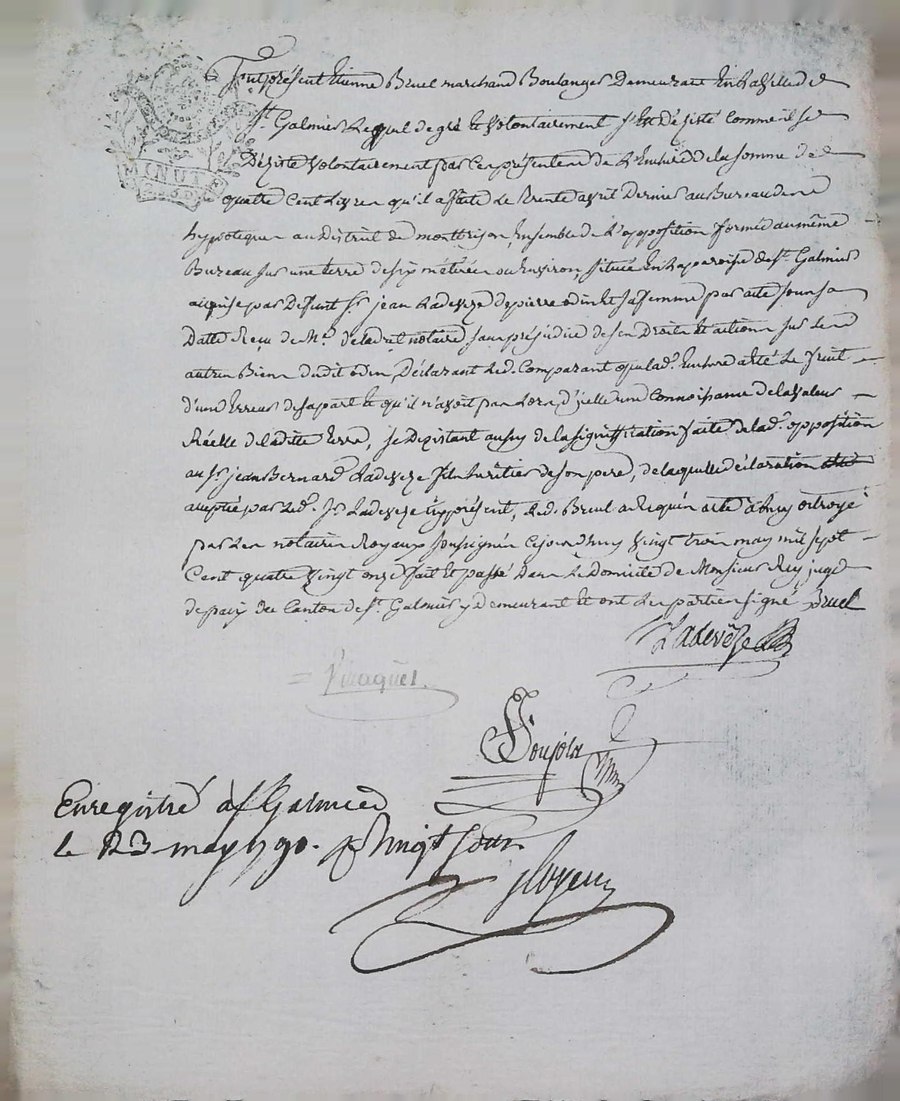 MINUTE
fut présent Etienne Bruel marchand Boulanger Demeurant En la ville de
St. Galmier Lequel de gré et volontairement s'est Désisté comme il se
Désiste volontairement par ces présentes de L'Enchere de la somme de
quatre Cent Livres qu'il a faite Le trente avril Dernier au Bureau des
hypoteques au District de montbrison, Ensemble de L'opposition formée au même
Bureau sur une terre de six métérées ou Environ, située En la paroisse de St. Galmier
acquise par Deffunt Sr. jean Ladevèze de pierre odin Et sa femme par acte sous sa
Datte Reçu de Me. notaire, sans préjudice de ses Droits Et actions sur Les
autres Biens dudit odin, Déclarant Led. Comparant que lad. Enchere a été Le fruit
d'une Erreur de sa part Et qu'il n'avoit pas Lors d'icelle une connoissance de la valeur
Réelle de laditte terre, se Désistant aussy de la signiffication faite de lad. opposition
au Sr. jean Bernard Ladeveze fils héritier de son pere, de laquelle déclaration
acceptée par Led. Sr. Ladeveze icy présent, Led. Bruel a Requis acte à Luy octroyé
par Les notaires Royaux soussignés Cejourd'huy vingt trois may mil sept
Cent quatre vingt onze fait Et passé Dans Le Domicile de Monsieur Rey juge
de paix du Canton de St. Galmier y Demeurant Et ont Les parties signé Bruel
Ladevèze
Enregistré à St Galmier
le 23 may 1790. vingt sous